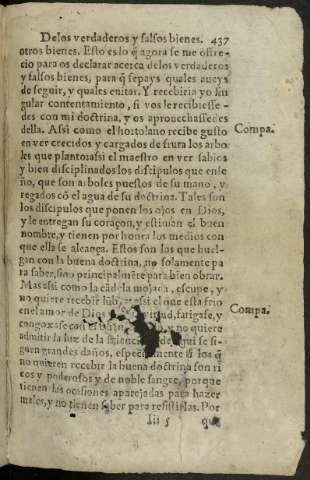 De los verdaderos y falsos bienes. 437
otros bienes. Esto es lo q̃ agora se me ofre-
cio para os declarar acerca delos verdaderos
y falsos bienes, para q̃ sepays quales aueys
de seguir, y quales euitar. Y recebiria yo sin
gular contentamiento, si vos le recibiesse-
des con mi doctrina, y os aprouechassedes
della. Assi como el hortolano recibe gusto
Compa.
en ver crecidos y cargados de fruta los arbo
les que planto: assi el maestro en ver sabios
y bien disciplinados los discipulos que ense
ño, que son arboles puestos de su mano, y
regados cõ el agua de su doctrina. Tales son
los discipulos que ponen los ojos en Dios,
y le entregan su coraçon, y estiman el buen
nombre, y tienen por honra los medios con
que ella se alcança. Estos son los que huel-
gan con la buena doctrina, no solamente pa
ra saber, sino principalmẽte para bien obrar.
Mas assi como la cãdela mojada, escupe, y
no quiere recebir lũb assi el que esta frio
Compa.
en el amor de Dios fatigase, y
congoxase y no quiere
admitir la luz de la sciencia que si se si-
guen grandes daños, especialmente si los q̃
no quieren recebir la buena doctrina son ri
cos y poderosos y de noble sangre, porque
tienen las ocasiones aparejadas para hazer
males, y no tienen saber para resistirlas. Por
Iii 5 que